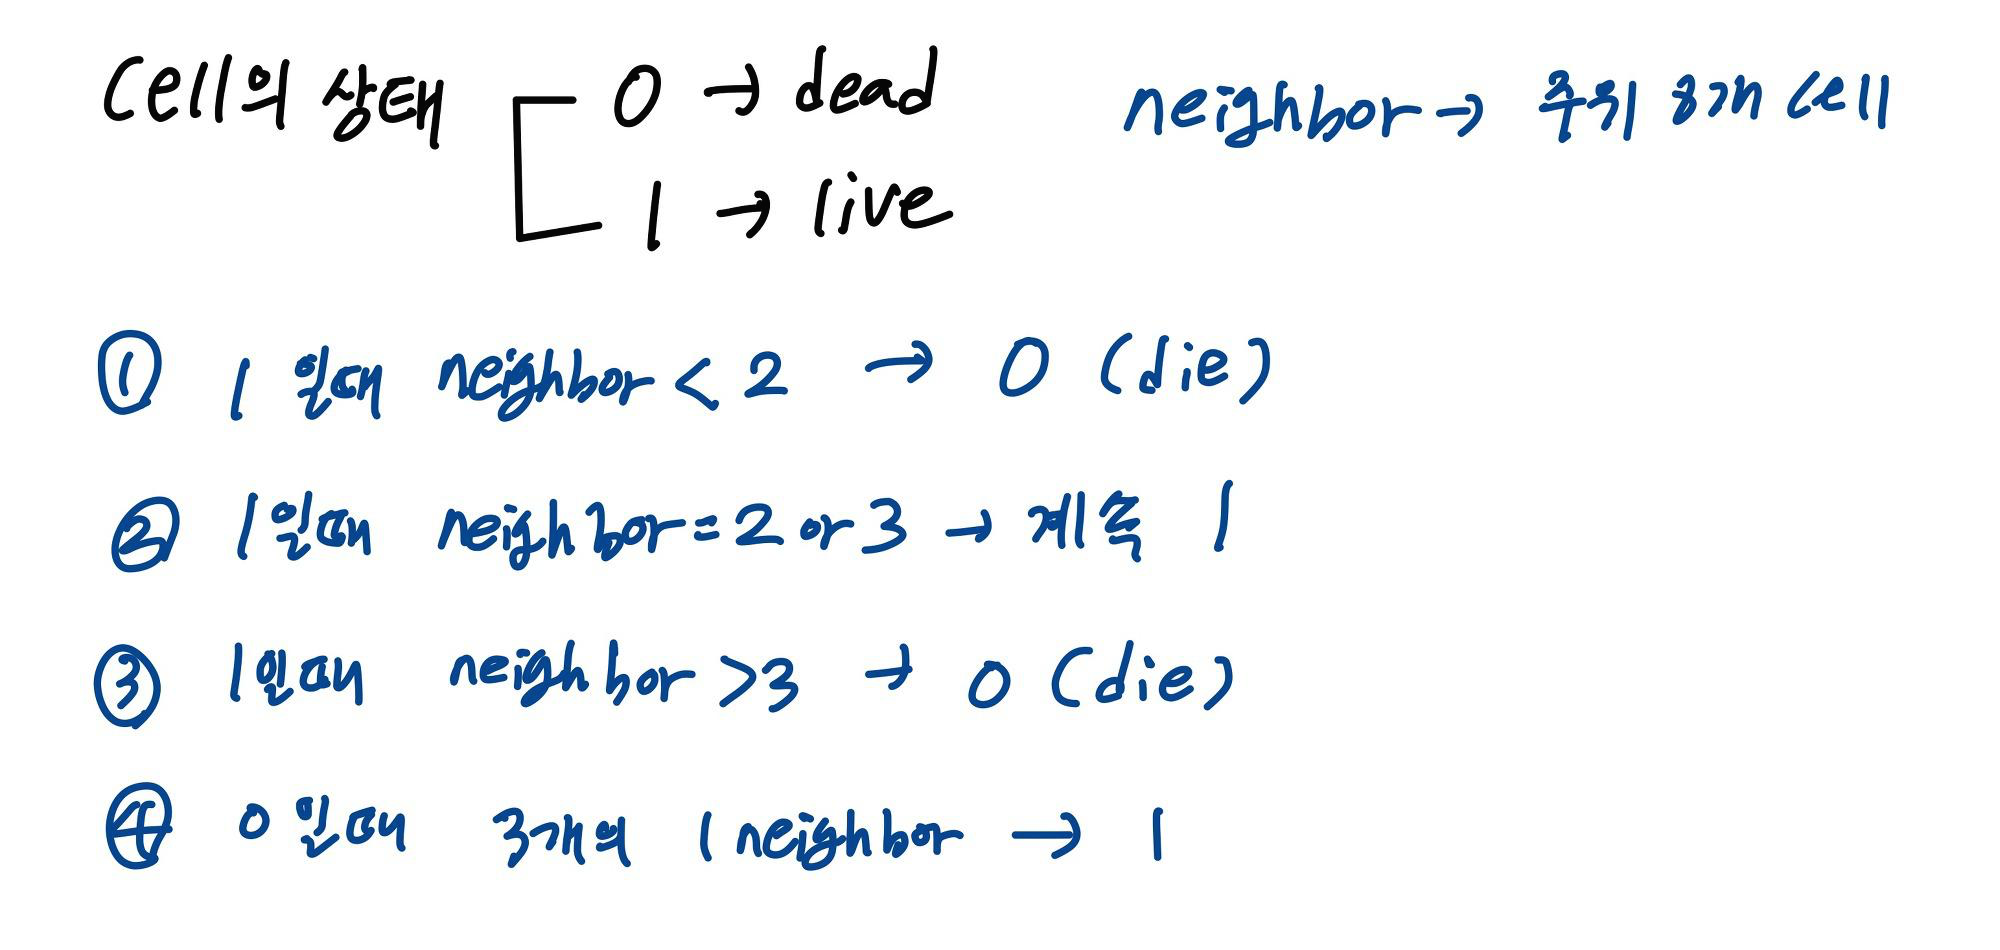 Cell의 상태 0 → dead
1 → live
neighbor → 주위 8개 cell
① 1 일때 neighbor < 2 → 0 (die)
② 1일때 neighbor = 2 or 3 → 계속 1
③ 1일때 neighbor >3 → 0 (die)
④ 0일때 3개의 1 neighbor → 1